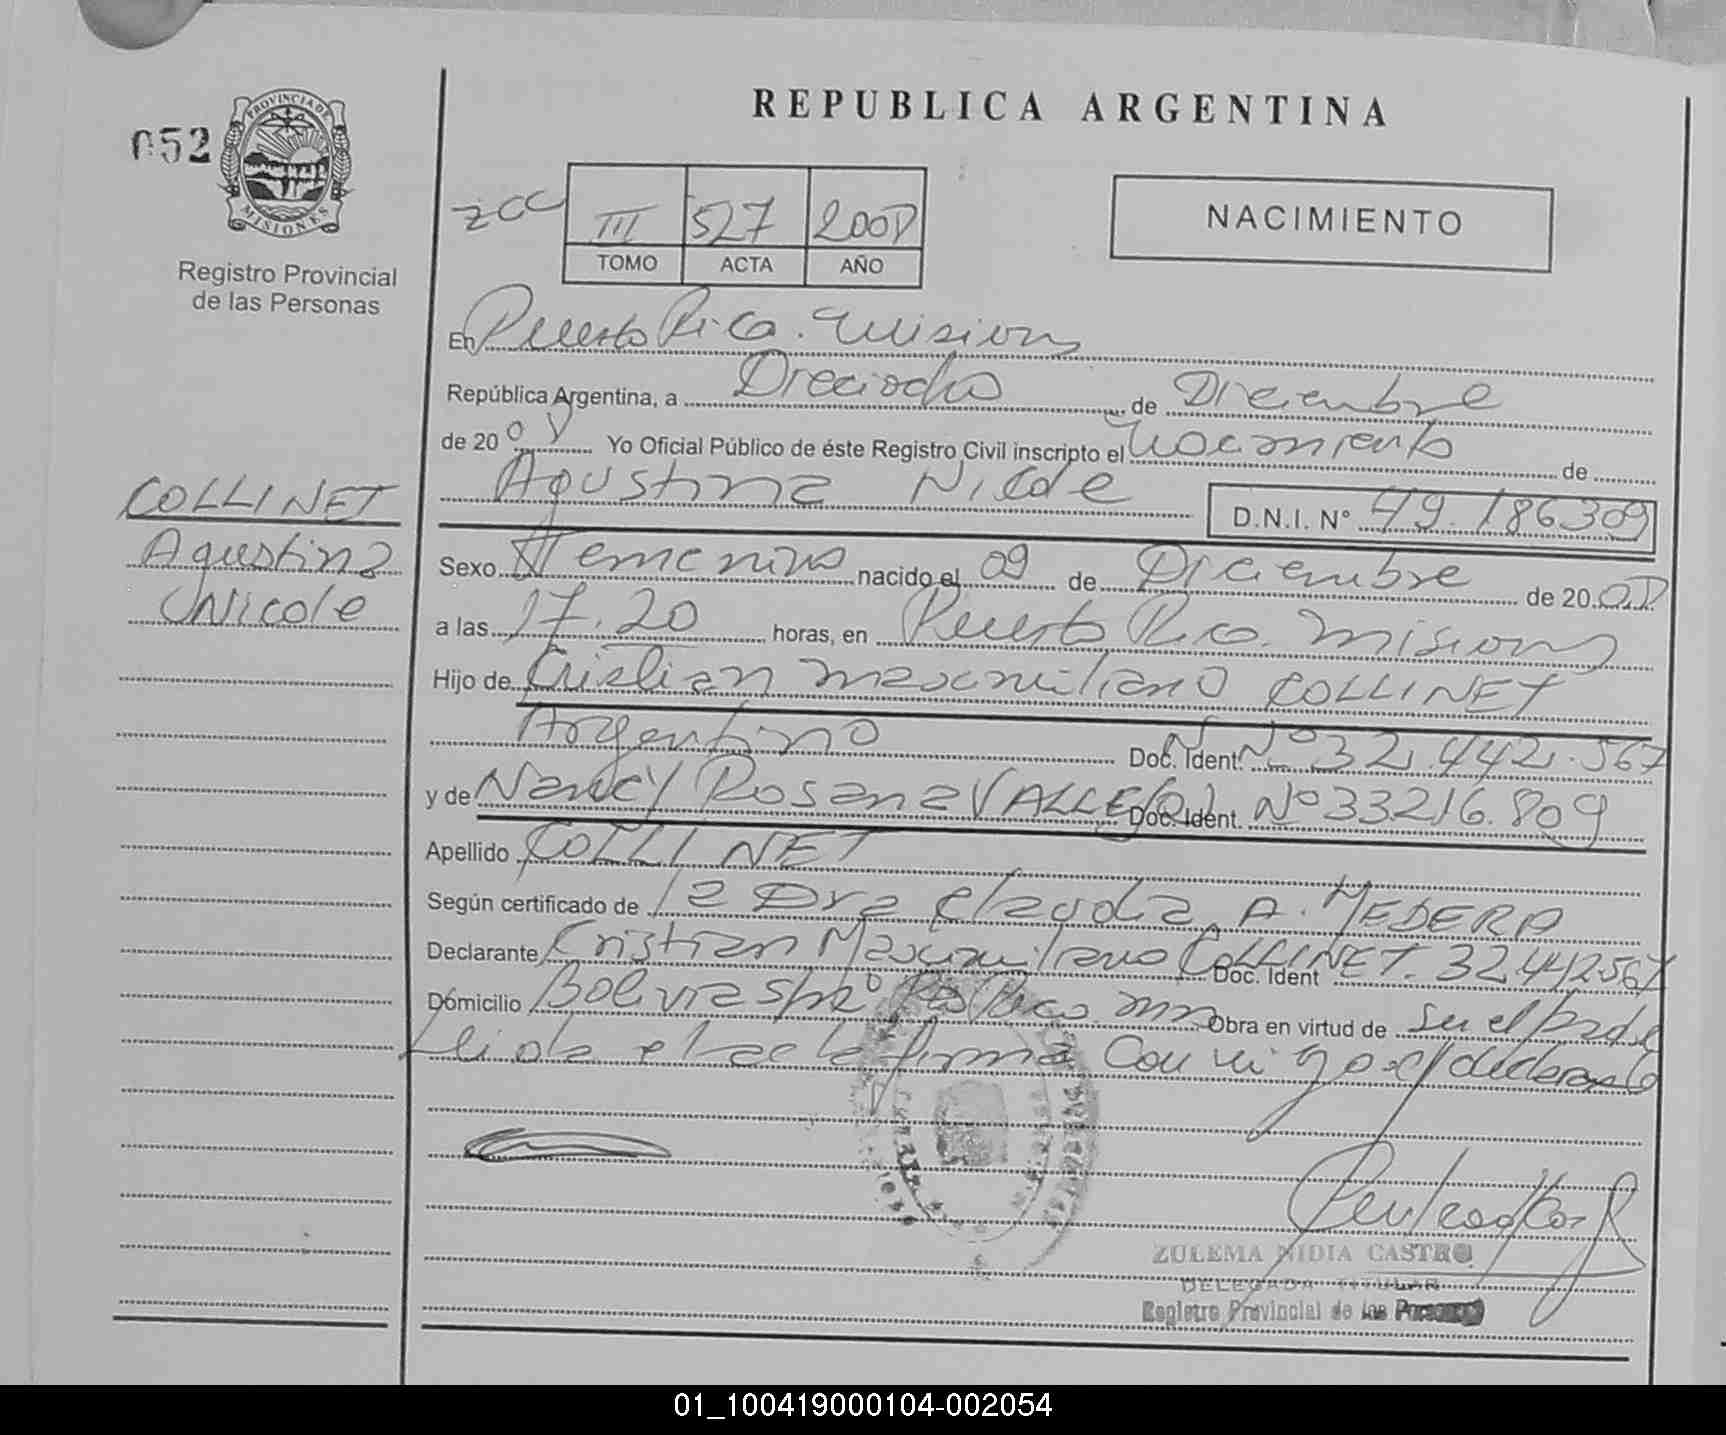 REPUBLICA ARGENTINA
052
PROVINCIA DE
MISIONES
Registro Provincial
de las Personas
III 527
TOMO ACTA AÑO
NACIMIENTO
En Puerto Rico. Misiones
República Argentina, a Dieciocho de Diciembre
de 20 Yo Oficial Público de éste Registro Civil inscripto el Nacimiento de
Agustina Nicole D.N.I. Nº 49.186309
COLLINET
Agustina
Nicole
Sexo Femenino nacido el 09 de Diciembre de 20
a las 17.20 horas, en Puerto Rico. Misiones
Hijo de Cristian Maximiliano COLLINET
Argentino Doc. Ident. Nº 32.442.567
y de Nancy Rosana VALLEJO Doc. Ident. Nº 33216.809
Apellido COLLINET
Según certificado de la Dra Claudia A. MEDERA
Declarante Cristian Maximiliano COLLINET. Doc. Ident 32442567
Domicilio Bolivia Obra en virtud de ser el padre
Leida el acta firma conmigo el declarante
ZULEMA NIDIA CASTRO
DELEGADA TITULAR
Registro Provincial de las Personas
01_100419000104-002054